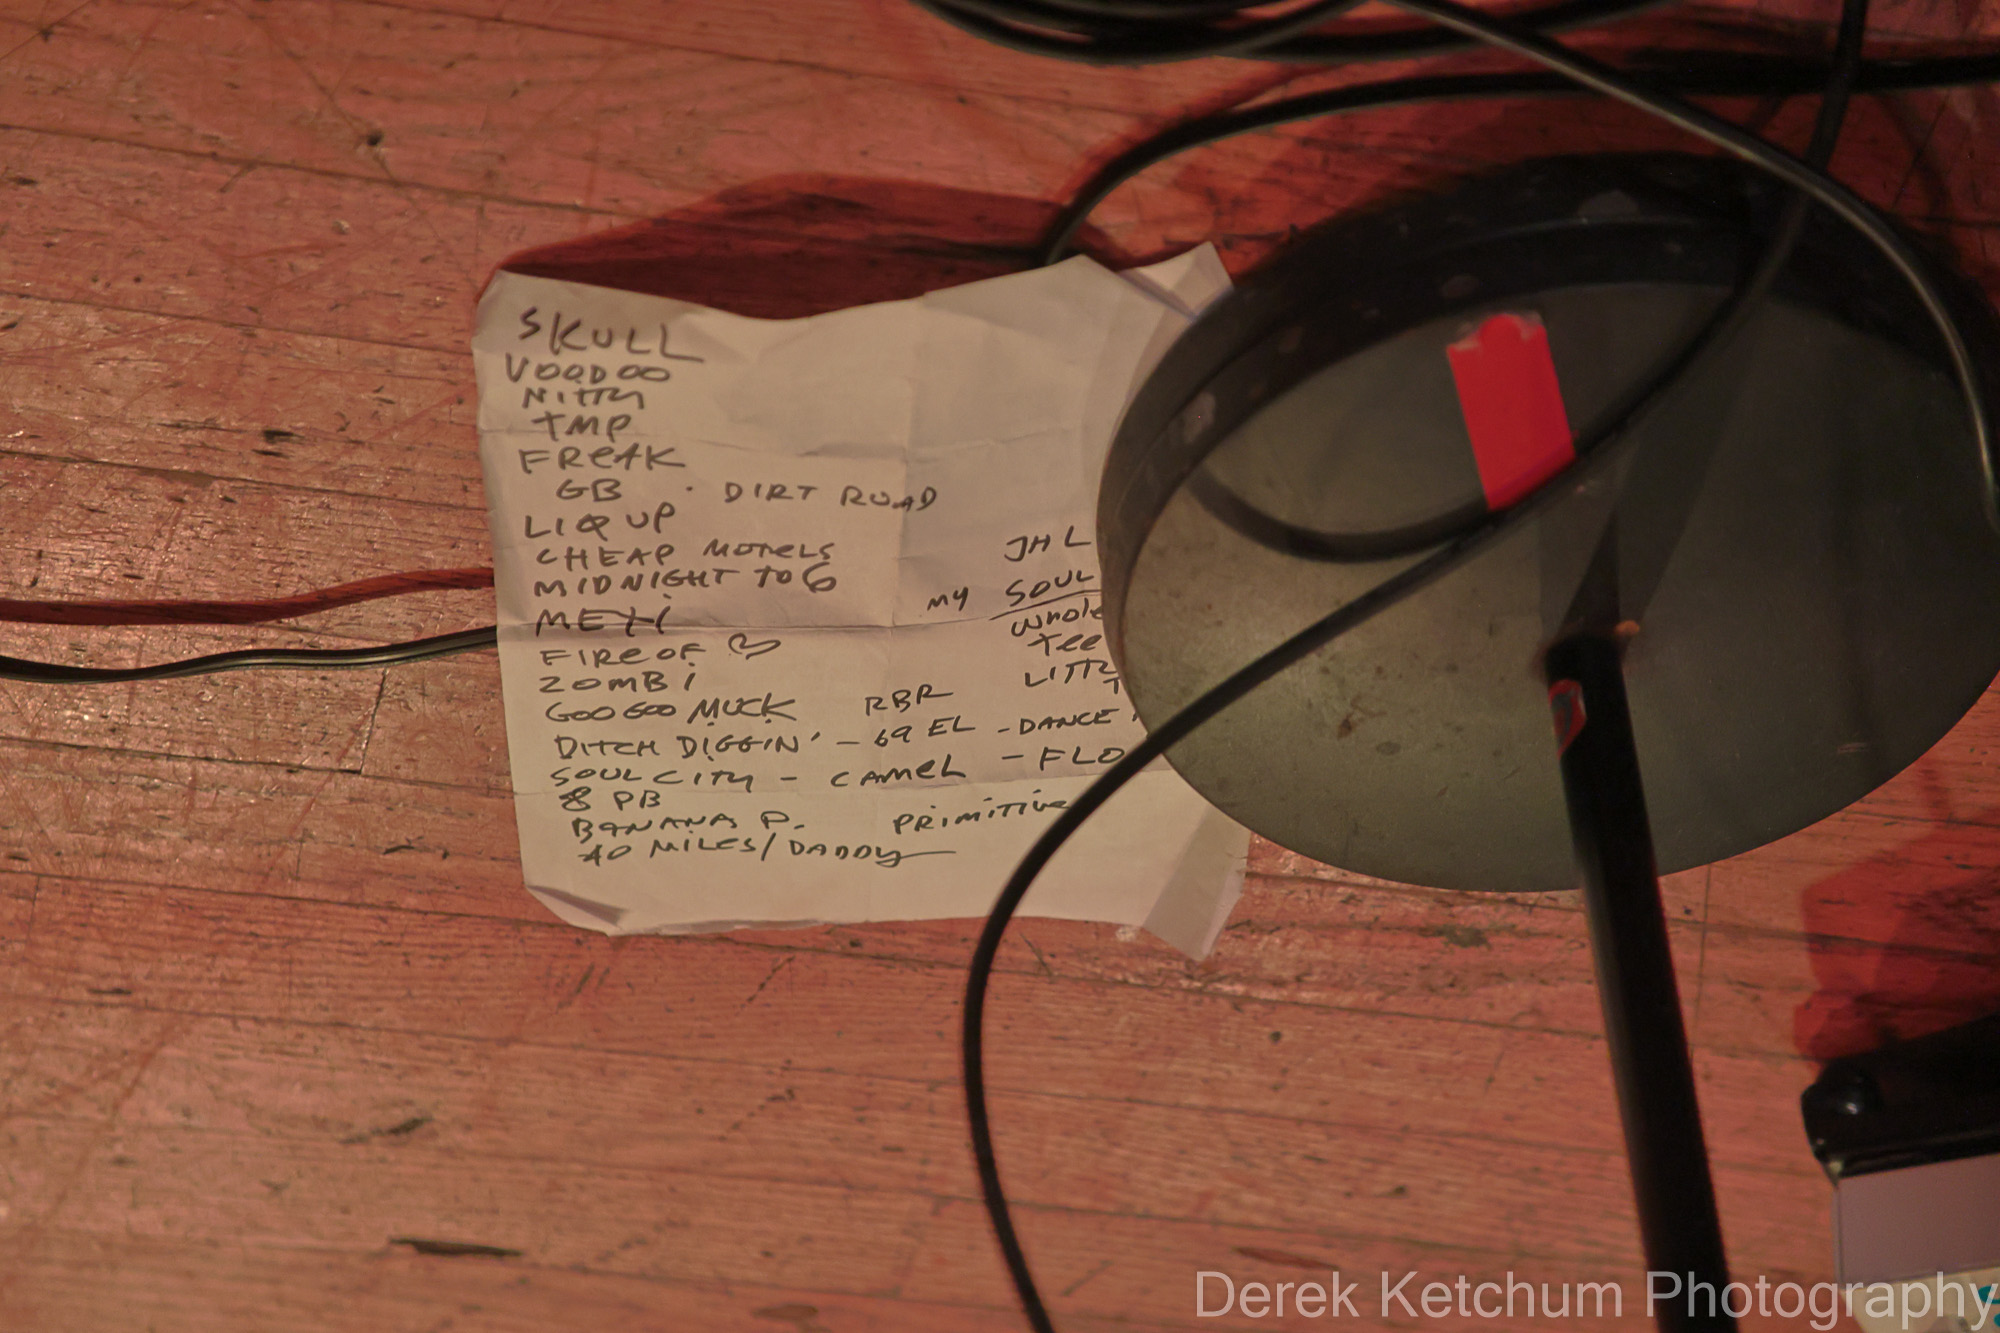 SKULL
VOODOO
NITTY
TMP
FREAK
GB · DIRT ROAD
LIQ UP
CHEAP MOTELS
MIDNIGHT TO 6
MEXI
FIRE OF
ZOMBi
GOO GOO MUCK RBR
DITCH DIGGIN' - 69 EL - DANCE
SOUL CITY - CAMEL - FLO
8 PB
BANANA P. PRIMITIVE
40 MILES/DADDY
JHL
MY SOUL
Whole
Tee
LITTL
T
Derek Ketchum Photography